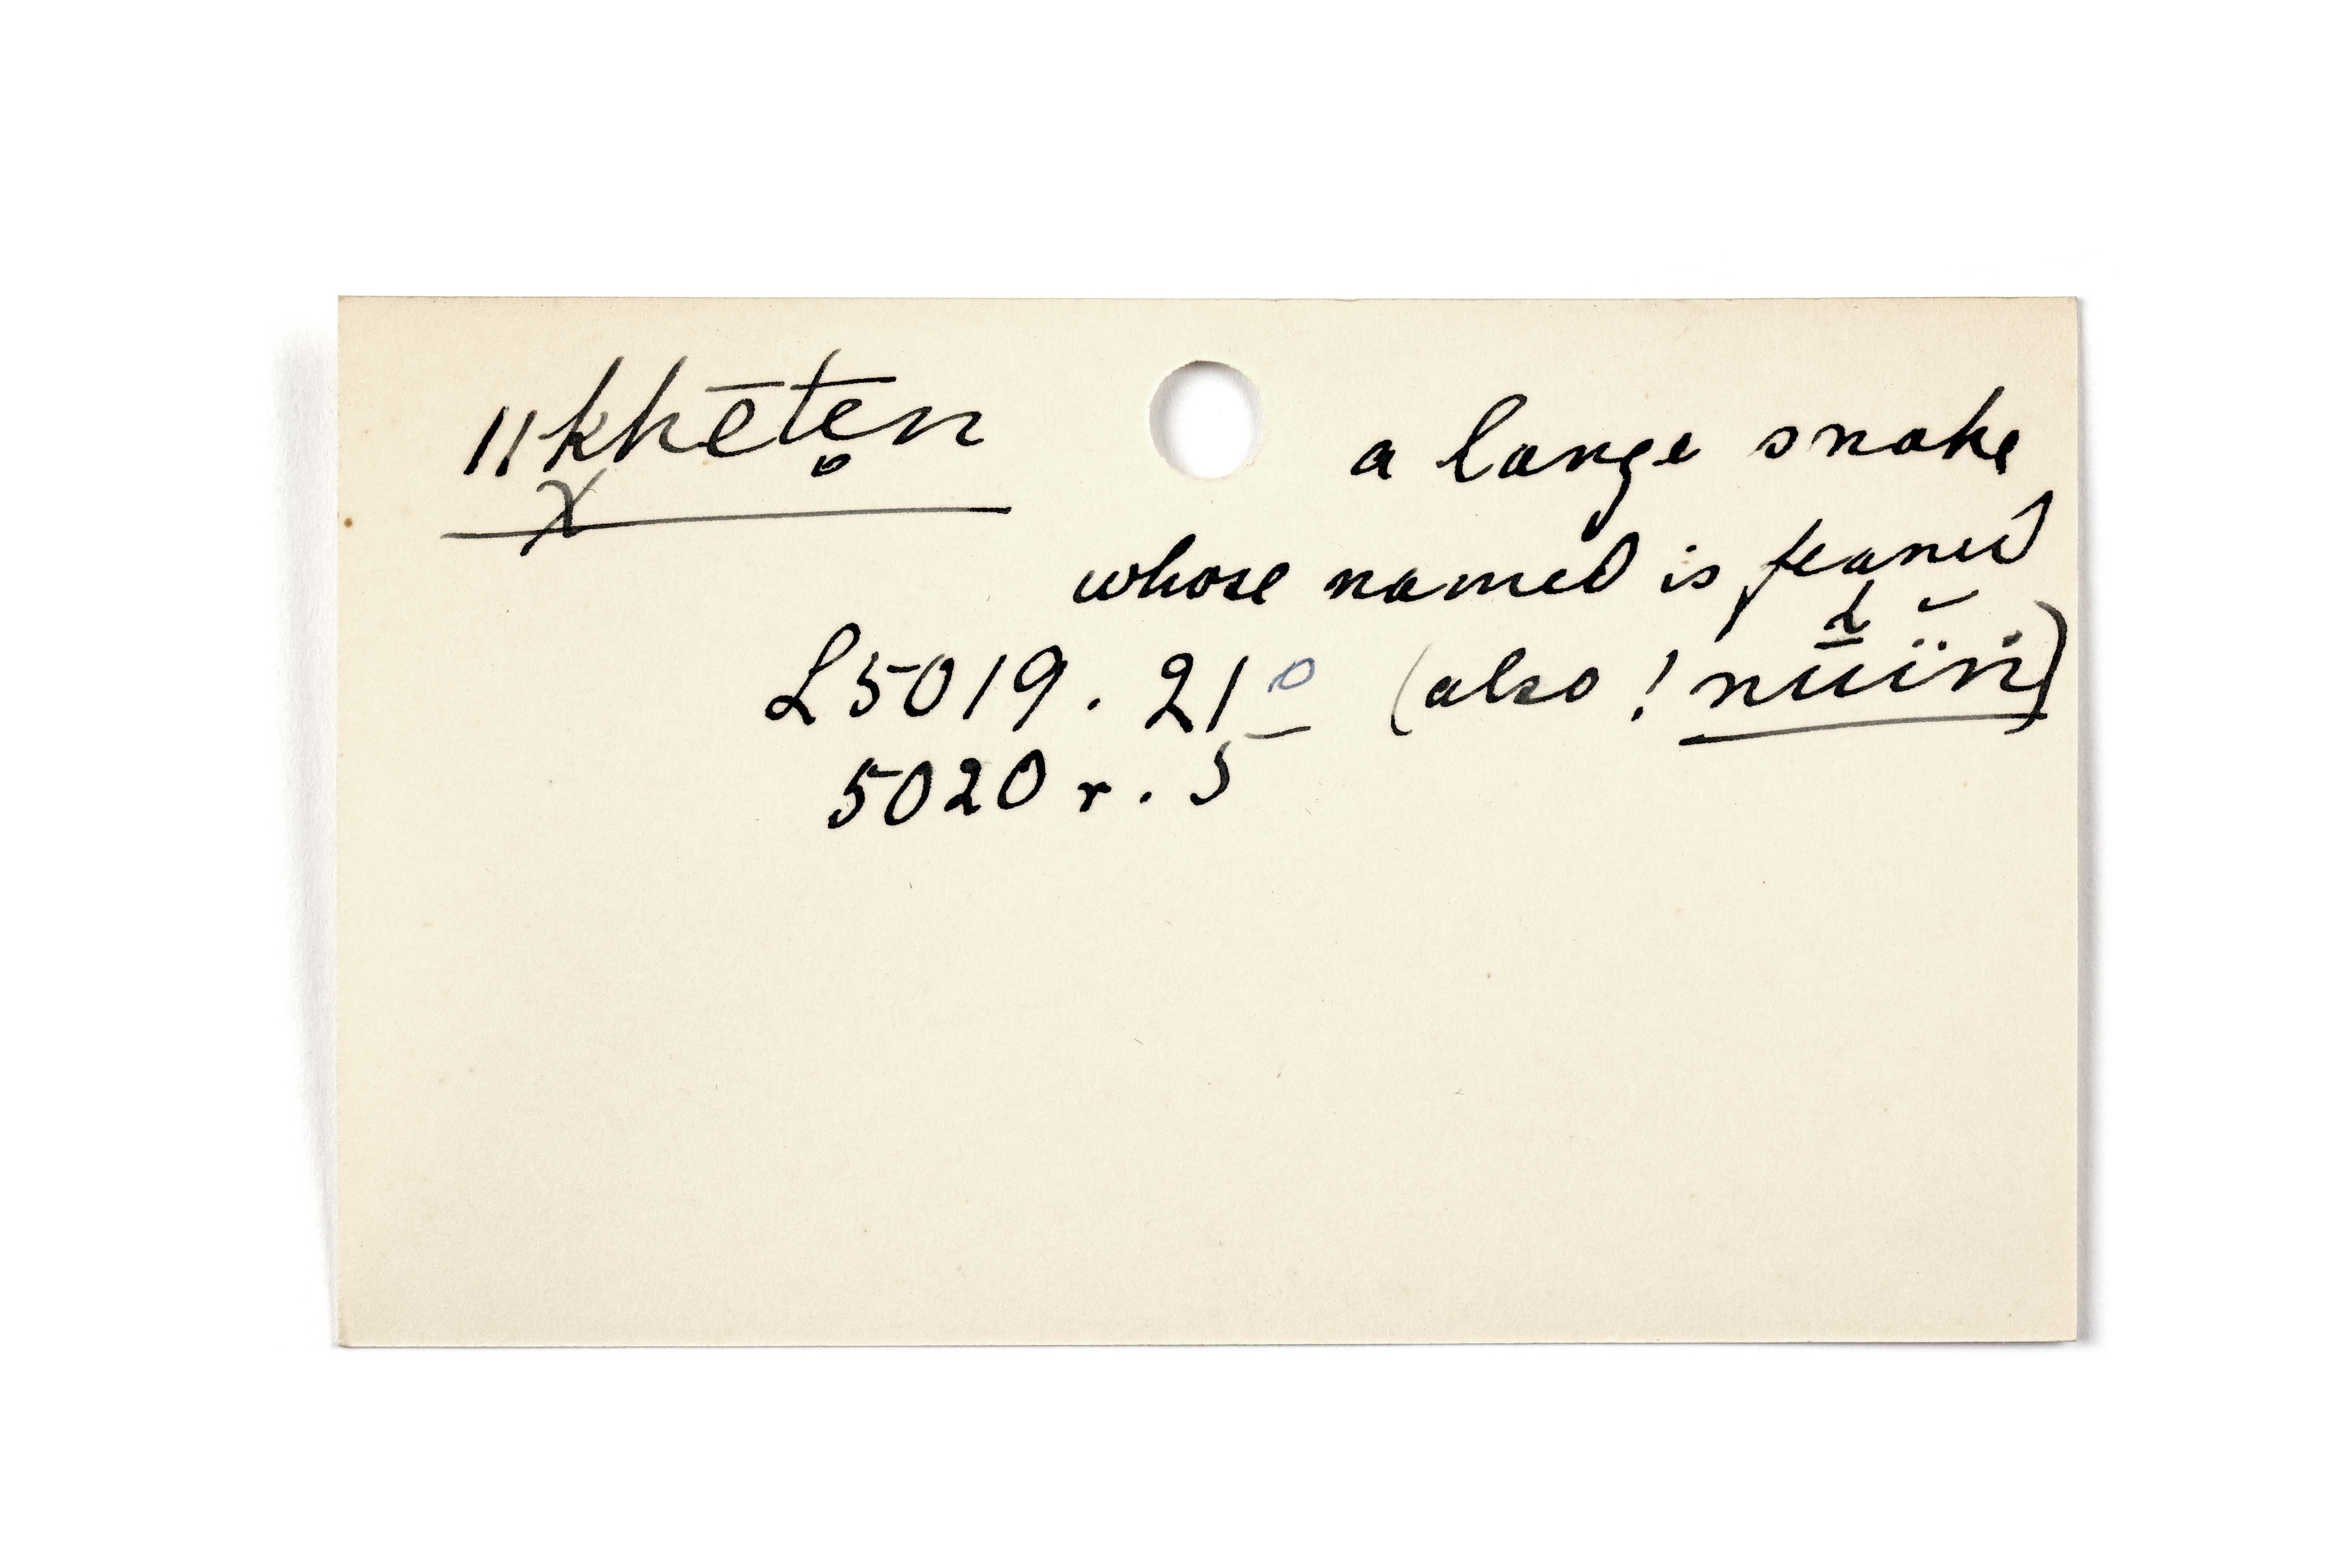 ǁkhētẹn a large snake
χ
whose named is feared
L5019. 21º (also ǃnūï̆ṅ)
5020 r. 5